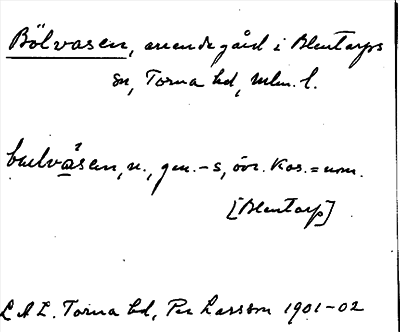 Bölvasen, arrendegård i Blentarps
sn, Torna hd, Mlm. l.
bœlvásen, n., gen. -s, övr. kas. = nom.
[Blentarp]
L A L. Torna hd, Per Larsson 1901-02